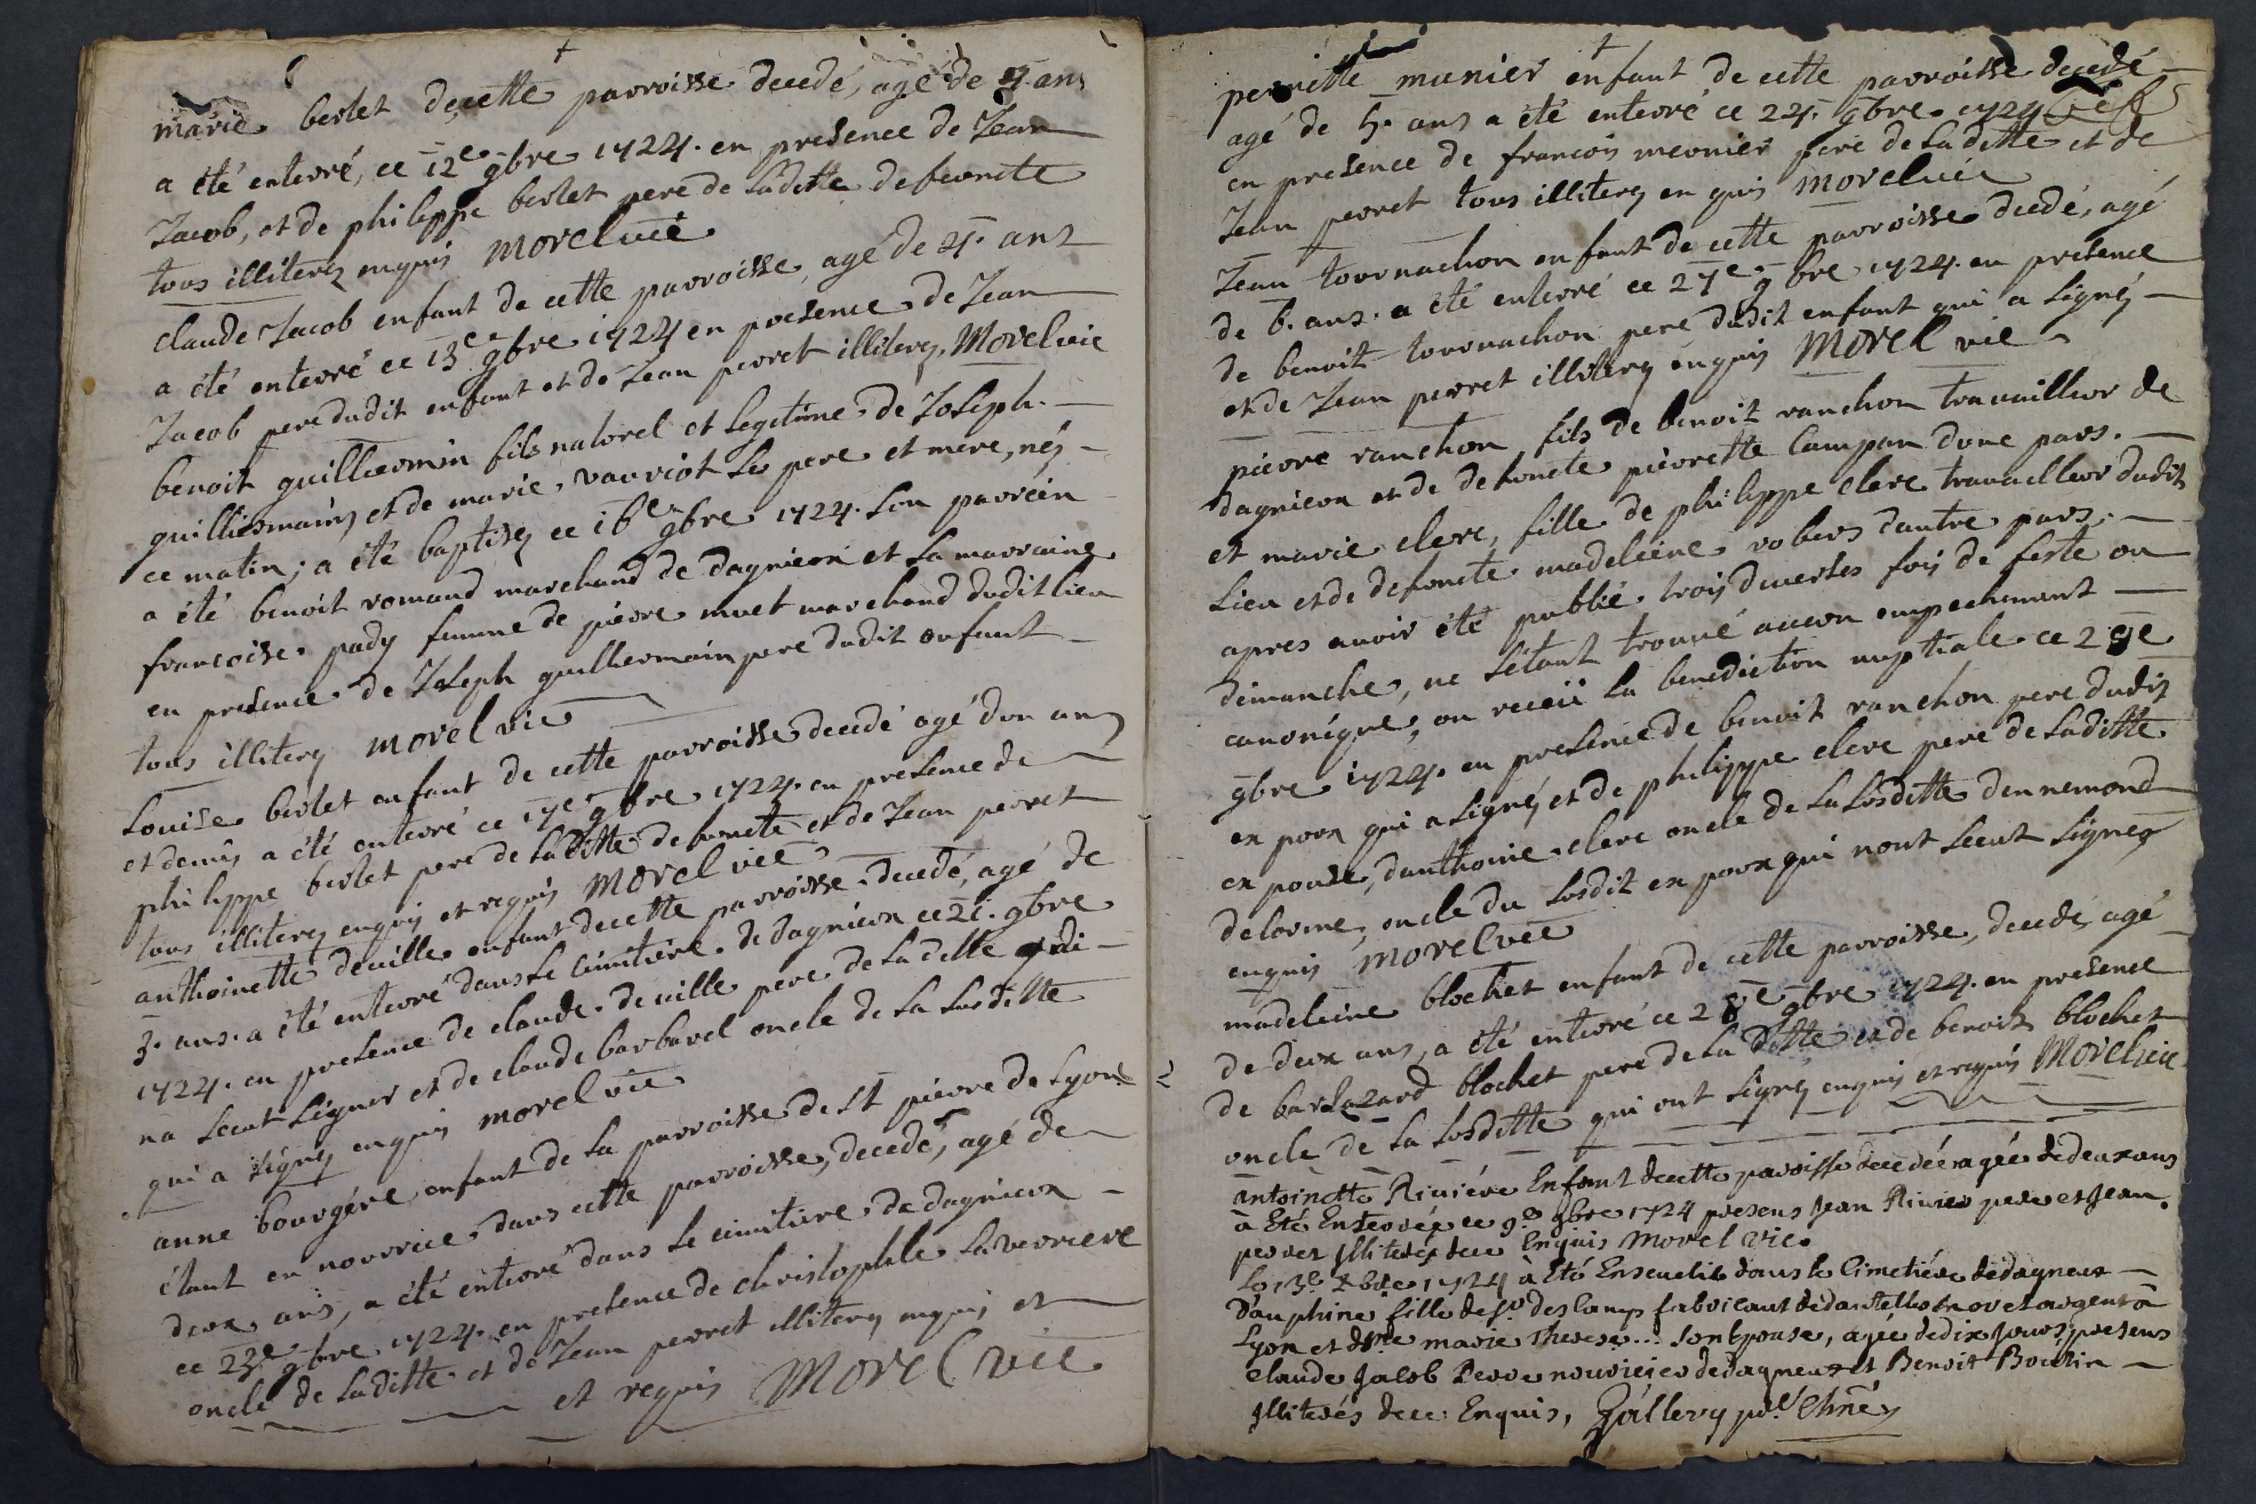 marie berlet decette parroisse decedé, agé de 9. ans
a été enterré, ce 12e gbre 1724. en presence de Jean
Jacob, et de philippe berlet pere de laditte defuncte
tous illiterez enquis morel vic
claude Jacob enfant de cette parroisse, agé de 4. ans
a été enterré ce 13e gbre 1724 en presence de Jean
Jacob pere dudit enfant et de Jean perret illiterez. Morel vic
benoit guilliermin fils naturel et legitime de Joseph
guilliermain et de marie vauriot ses pere et mere, néz
ce matin; a été baptisez ce 16e gbre 1724. son parrein
a été benoit romand marchand de dagnieux et la marraine
francoise pady femme de pierre muet marchand dudit lieu
en presence de Joseph guilliermain pere dudit enfant
tous illiterez morel vic
Louise berlet enfant de cette parroisse decedé agé d'un an
et demis a été enterré ce 17e gbre 1724. en presence de
philippe berlet pere de laditte defuncte et de Jean perret
tous illiterez enquis et requis morel vic
anthoinette deville enfant decette parroisse decedé, agé de
3. ans. a été enterré dans le cimitiere de dagnieux ce 21. gbre
1724. en presence de claude deville pere de la ditte qui
na sceut signer et de claude barbarel oncle de la susditte
qui a signez enquis morel vic
anne bourgére enfant de la parroisse de st pierre de Lyon
étant en nourrice dans cette parroisse, decedé, agé de
deux ans, a été enterré dans le cimitiere de dagnieux
ce 23e gbre 1724. en presence de christophle laverriere
oncle de laditte et de Jean perret illiterez enquis et
et requis Morel vic
perrette munier enfant de cette parroisse decedé
agé de 5. ans a été enterré ce 24. gbre 1724
en presence de francois meunier pere de laditte et de
Jean perret tous illiterez en quis morel vic
Jean tournachon enfant de cette parroisse decedé, agé
de 6. ans. a été enterré ce 27e gbre 1724. en presence
de benoit tournachon pere dudit enfant qui a signéz
et de Jean perret illiterez enquis Morel vic
pierre ranchon fils de benoit ranchon travailleur de
dagnieux et de defuncte pierrette Campan dune part.
et marie clerc, fille de philippe clerc travailleur dudit
Lieu et de defuncte madeleine robers dautre part.
apres avoir été publié trois diverses fois de feste ou
dimanche, ne sétant trouvé aucun empechement
canonique, on receü la benediction nuptiale ce 29e
gbre 1724. en presence de benoit ranchon pere dudit
ex poux qui a signéz et de philippe clerc pere de laditte
ex pouse, danthoine clerc oncle de la susditte dennemond
delorme, oncle du susdit ex poux qui nont sceut signez
enquis morel vic
madeleine blochet enfant de cette parroisse, decedé, agé
de deux ans, a été enterré ce 28e gbre 1724. en presence
de barlazard blochet pere de la ditte et de benoit blochet
oncle de la susditte qui ont signez enquis et requis Morel vic
antoinette Riviére Enfant decette paroisse decedée agée dedeux ans
à Eté Enterrée ce 9e xbre 1724 presens Jean Rivier pere et Jean
perret Illiterés dece Enquis Morel vic
Le 13e xbre 1724 à Eté Ensevelie dans le Cimetiére dedagneux
Dauphine fille de sr des Camp fabricant dedantelles en or et argent à
Lyon et dlle marie Therese.... son Epouse, agée dedix jours, presens
claude Jacob Pere nourricier dedagneux et Benoit Boudin
Illiterés dece Enquis,